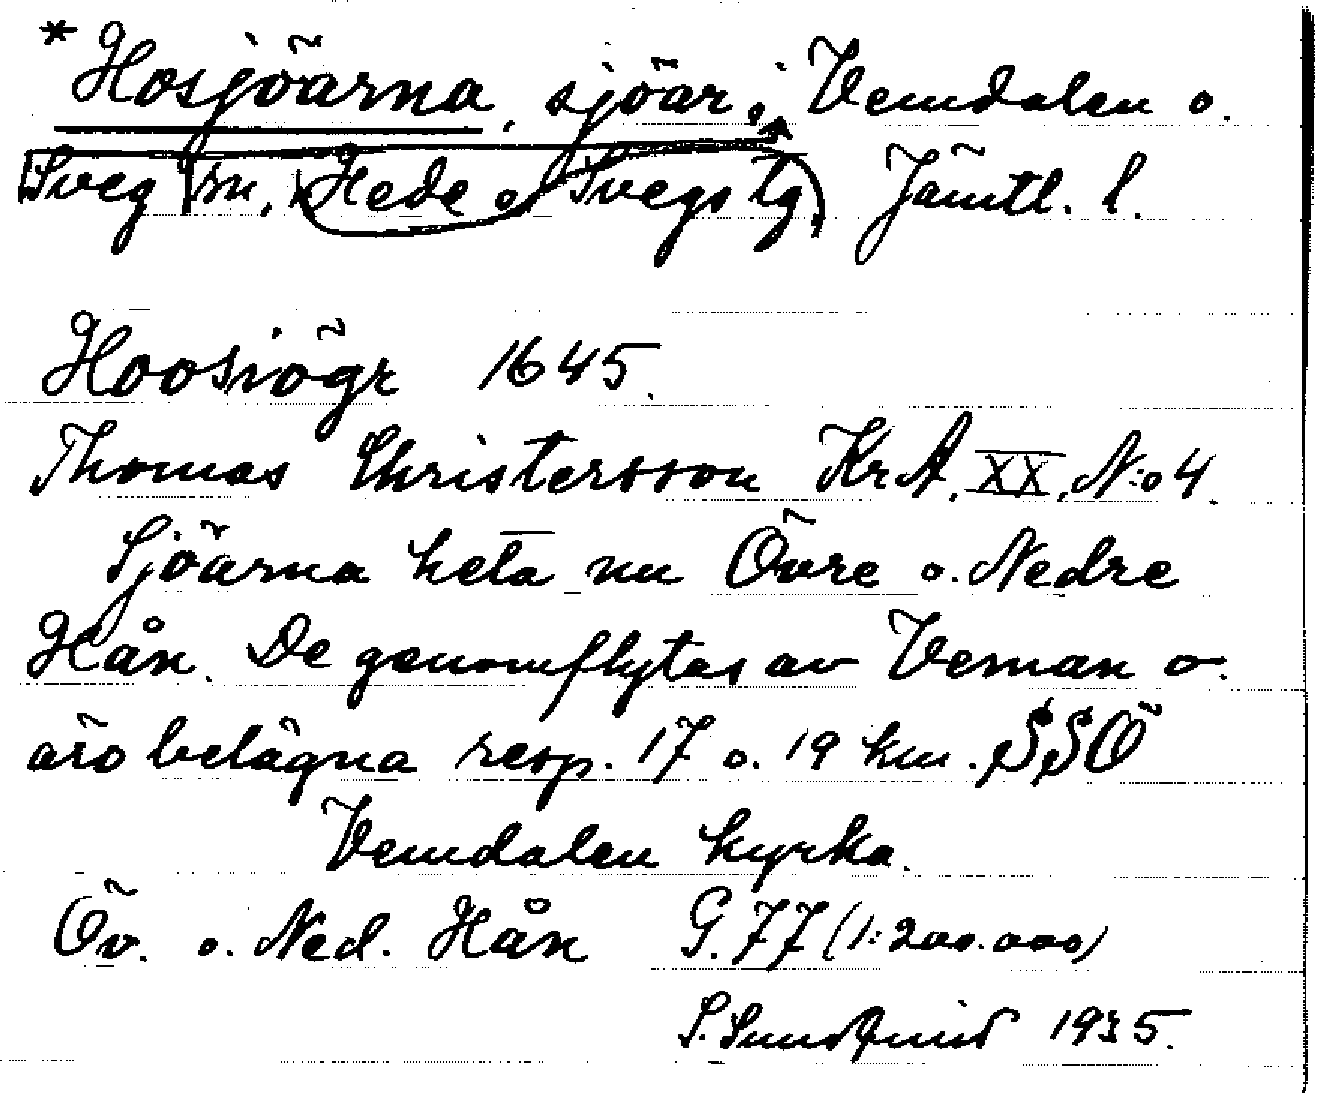 *Hosjöarna, sjöar, Vemdalen o.
Sveg sn, Hede o Svegs tg, Jämtl. l.
Hoosiögr 1645.
Thomas Christersson KrA. XX. N:o 4.
Sjöarna heta nu Övre o. Nedre
Hån. De genomflytas av Veman o.
äro belägna resp. 17 o. 19 km. SSÖ
Vemdalen kyrka.
Öv. o. Ned. Hån G. 77 (1:200.000)
S. Sundquist 1935.